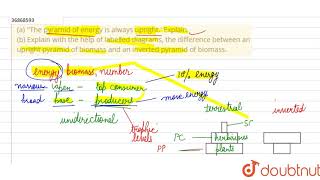 36868593
(a) "The pyramid of energy is always upright. Explain.
(b) Explain with the help of labelled diagrams, the difference between an
upright pyramid of biomass and an inverted pyramid of biomass.
energy, biomass, number
10% energy
narrow upon - top consumer
broad base - producers
more energy
unidirectional
trophic
levels
terrestrial
inverted
SC
PC herbivorous
PP plants
doubtnut